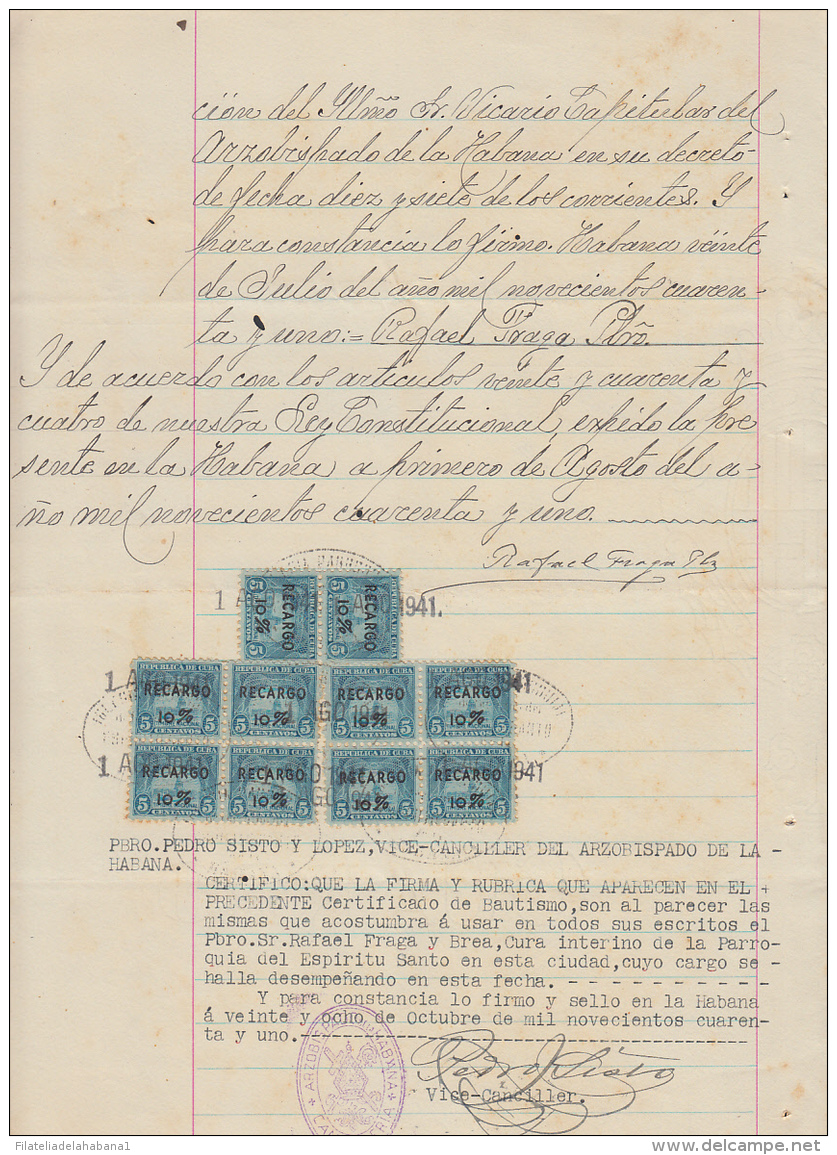 ción del Ylmõ Sr. Vicario Capitular del
Arzobispado de la Habana en su decreto
de fecha diez y siete de los corrientes. Y
para constancia lo firmo. Habana veinte
de Julio del año mil novecientos cuaren-
ta y uno:= Rafael Fraga Pbrõ.
Y de acuerdo con los articulos veinte y cuarenta y
cuatro de nuestra Ley Constitucional, expido la pre
sente en la Habana a primero de Agosto del a-
ño mil novecientos cuarenta y uno.
Rafael Fraga Pbr
1 AGO 1941.
RECARGO 10% RECARGO 10%
5 5
1 AGO 1941
REPUBLICA DE CUBA REPUBLICA DE CUBA REPUBLICA DE CUBA REPUBLICA DE CUBA
RECARGO RECARGO RECARGO RECARGO
1 AGO 1941
5 10% 5 5 10% 5 5 10% 5 5 10% 5
CENTAVOS CENTAVOS CENTAVOS CENTAVOS
1 AGO 1941 1941
RECARGO RECARGO RECARGO RECARGO
5 10% 5 5 10% 5 5 10% 5 5 10% 5
CENTAVOS CENTAVOS CENTAVOS CENTAVOS
PBRO.PEDRO SISTO Y LOPEZ,VICE-CANCILLER DEL ARZOBISPADO DE LA -
HABANA.
CERTIFICO:QUE LA FIRMA Y RUBRICA QUE APARECEN EN EL +
PRECEDENTE Certificado de Bautismo,son al parecer las
mismas que acostumbrá á usar en todos sus escritos el
Pbro.Sr.Rafael Fraga y Brea,Cura interino de la Parro-
quia del Espiritu Santo en esta ciudad,cuyo cargo se-
halla desempeñando en esta fecha. - - - - - - - - - -
Y para constancia lo firmo y sello en la Habana
á veinte y ocho de Octubre de mil novecientos cuaren-
ta y uno.--------------------------------------------
ARZOBISPADO DE LA HABANA
Pedro Sisto
Vice-Canciller.
Filateliadelahabana1
www.delcampe.net